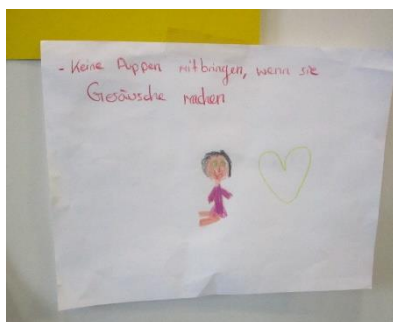 - Keine Puppen mitbringen, wenn sie
Geräusche machen